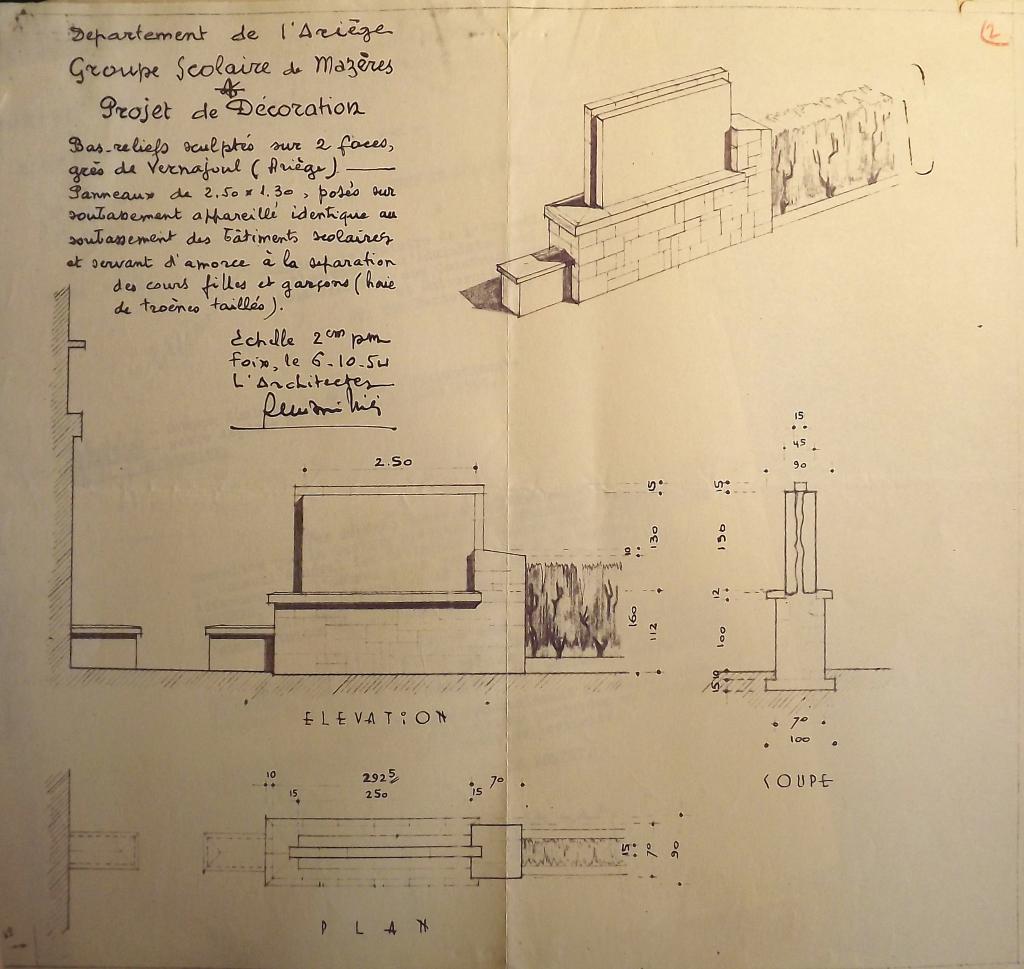 Departement de l'Ariège
Groupe Scolaire de Mazères
Projet de Décoration
Bas-reliefs sculptés sur 2 faces,
grès de Vernajoul (Ariège)
Panneaux de 2.50 x 1.30, posés sur
soubassement appareillé identique au
soubassement des bâtiments scolaires
et servant d'amorce à la separation
des cours filles et garçons (haie
de troènes taillés).
Echelle 2cm pm
Foix, le 6-10-54
L'Architecte
2
2.50
15
130
10
160
112
ELEVATION
15
45
90
15
130
12
100
15
10
70
100
COUPE
10
2925
70
15
250
15
15
70
90
PLAN